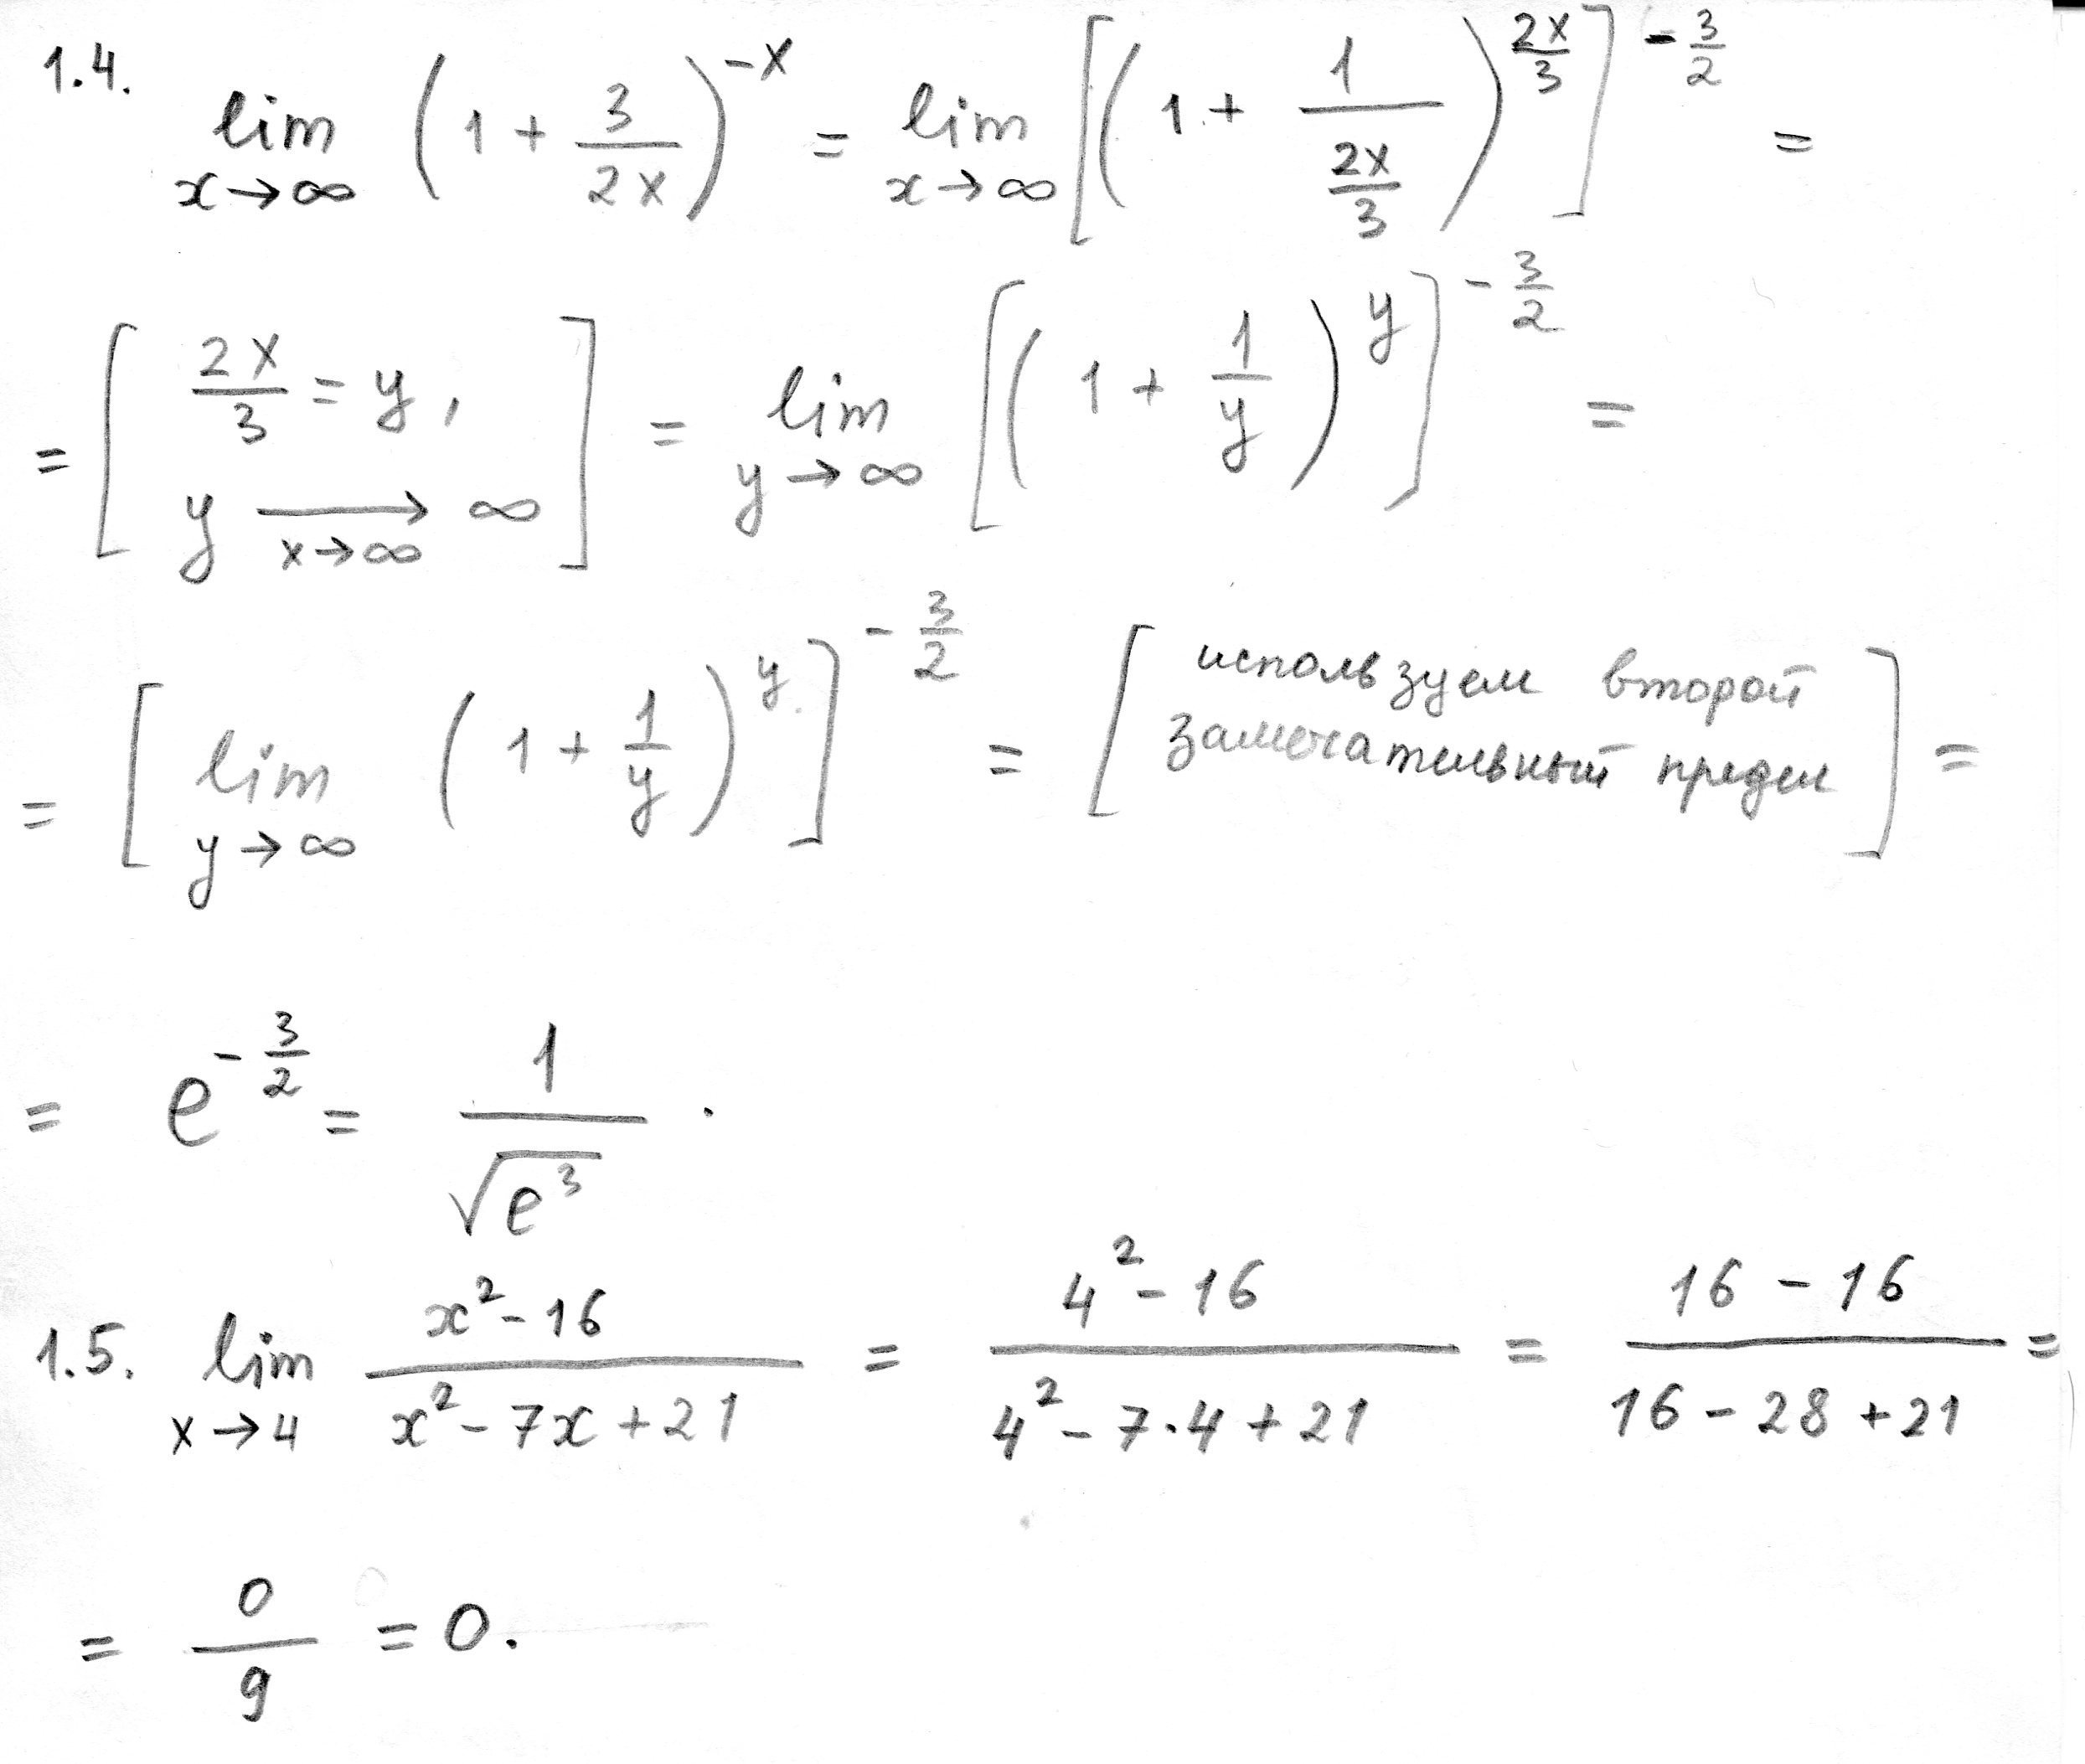 1.4. lim x→∞ (1 + 3/2x)^(-x) = lim x→∞ [(1 + 1/(2x/3))^(2x/3)]^(-3/2) =
= [2x/3 = y, y →(x→∞) ∞] = lim y→∞ [(1 + 1/y)^y]^(-3/2) =
= [lim y→∞ (1 + 1/y)^y]^(-3/2) = [используем второй замечательный предел] =
= e^(-3/2) = 1/√(e^3).
1.5. lim x→4 (x² - 16)/(x² - 7x + 21) = (4² - 16)/(4² - 7·4 + 21) = (16 - 16)/(16 - 28 + 21) =
= 0/9 = 0.